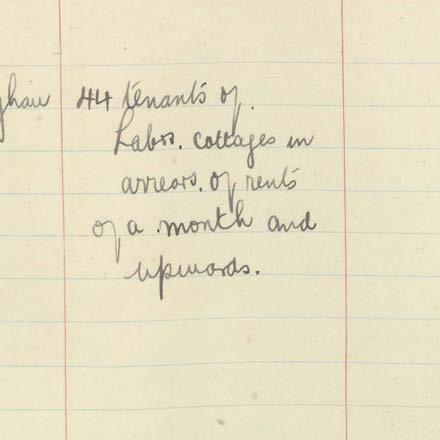 44 tenants of
Labrs. cottages in
arrears. of rents
of a month and
upwards.